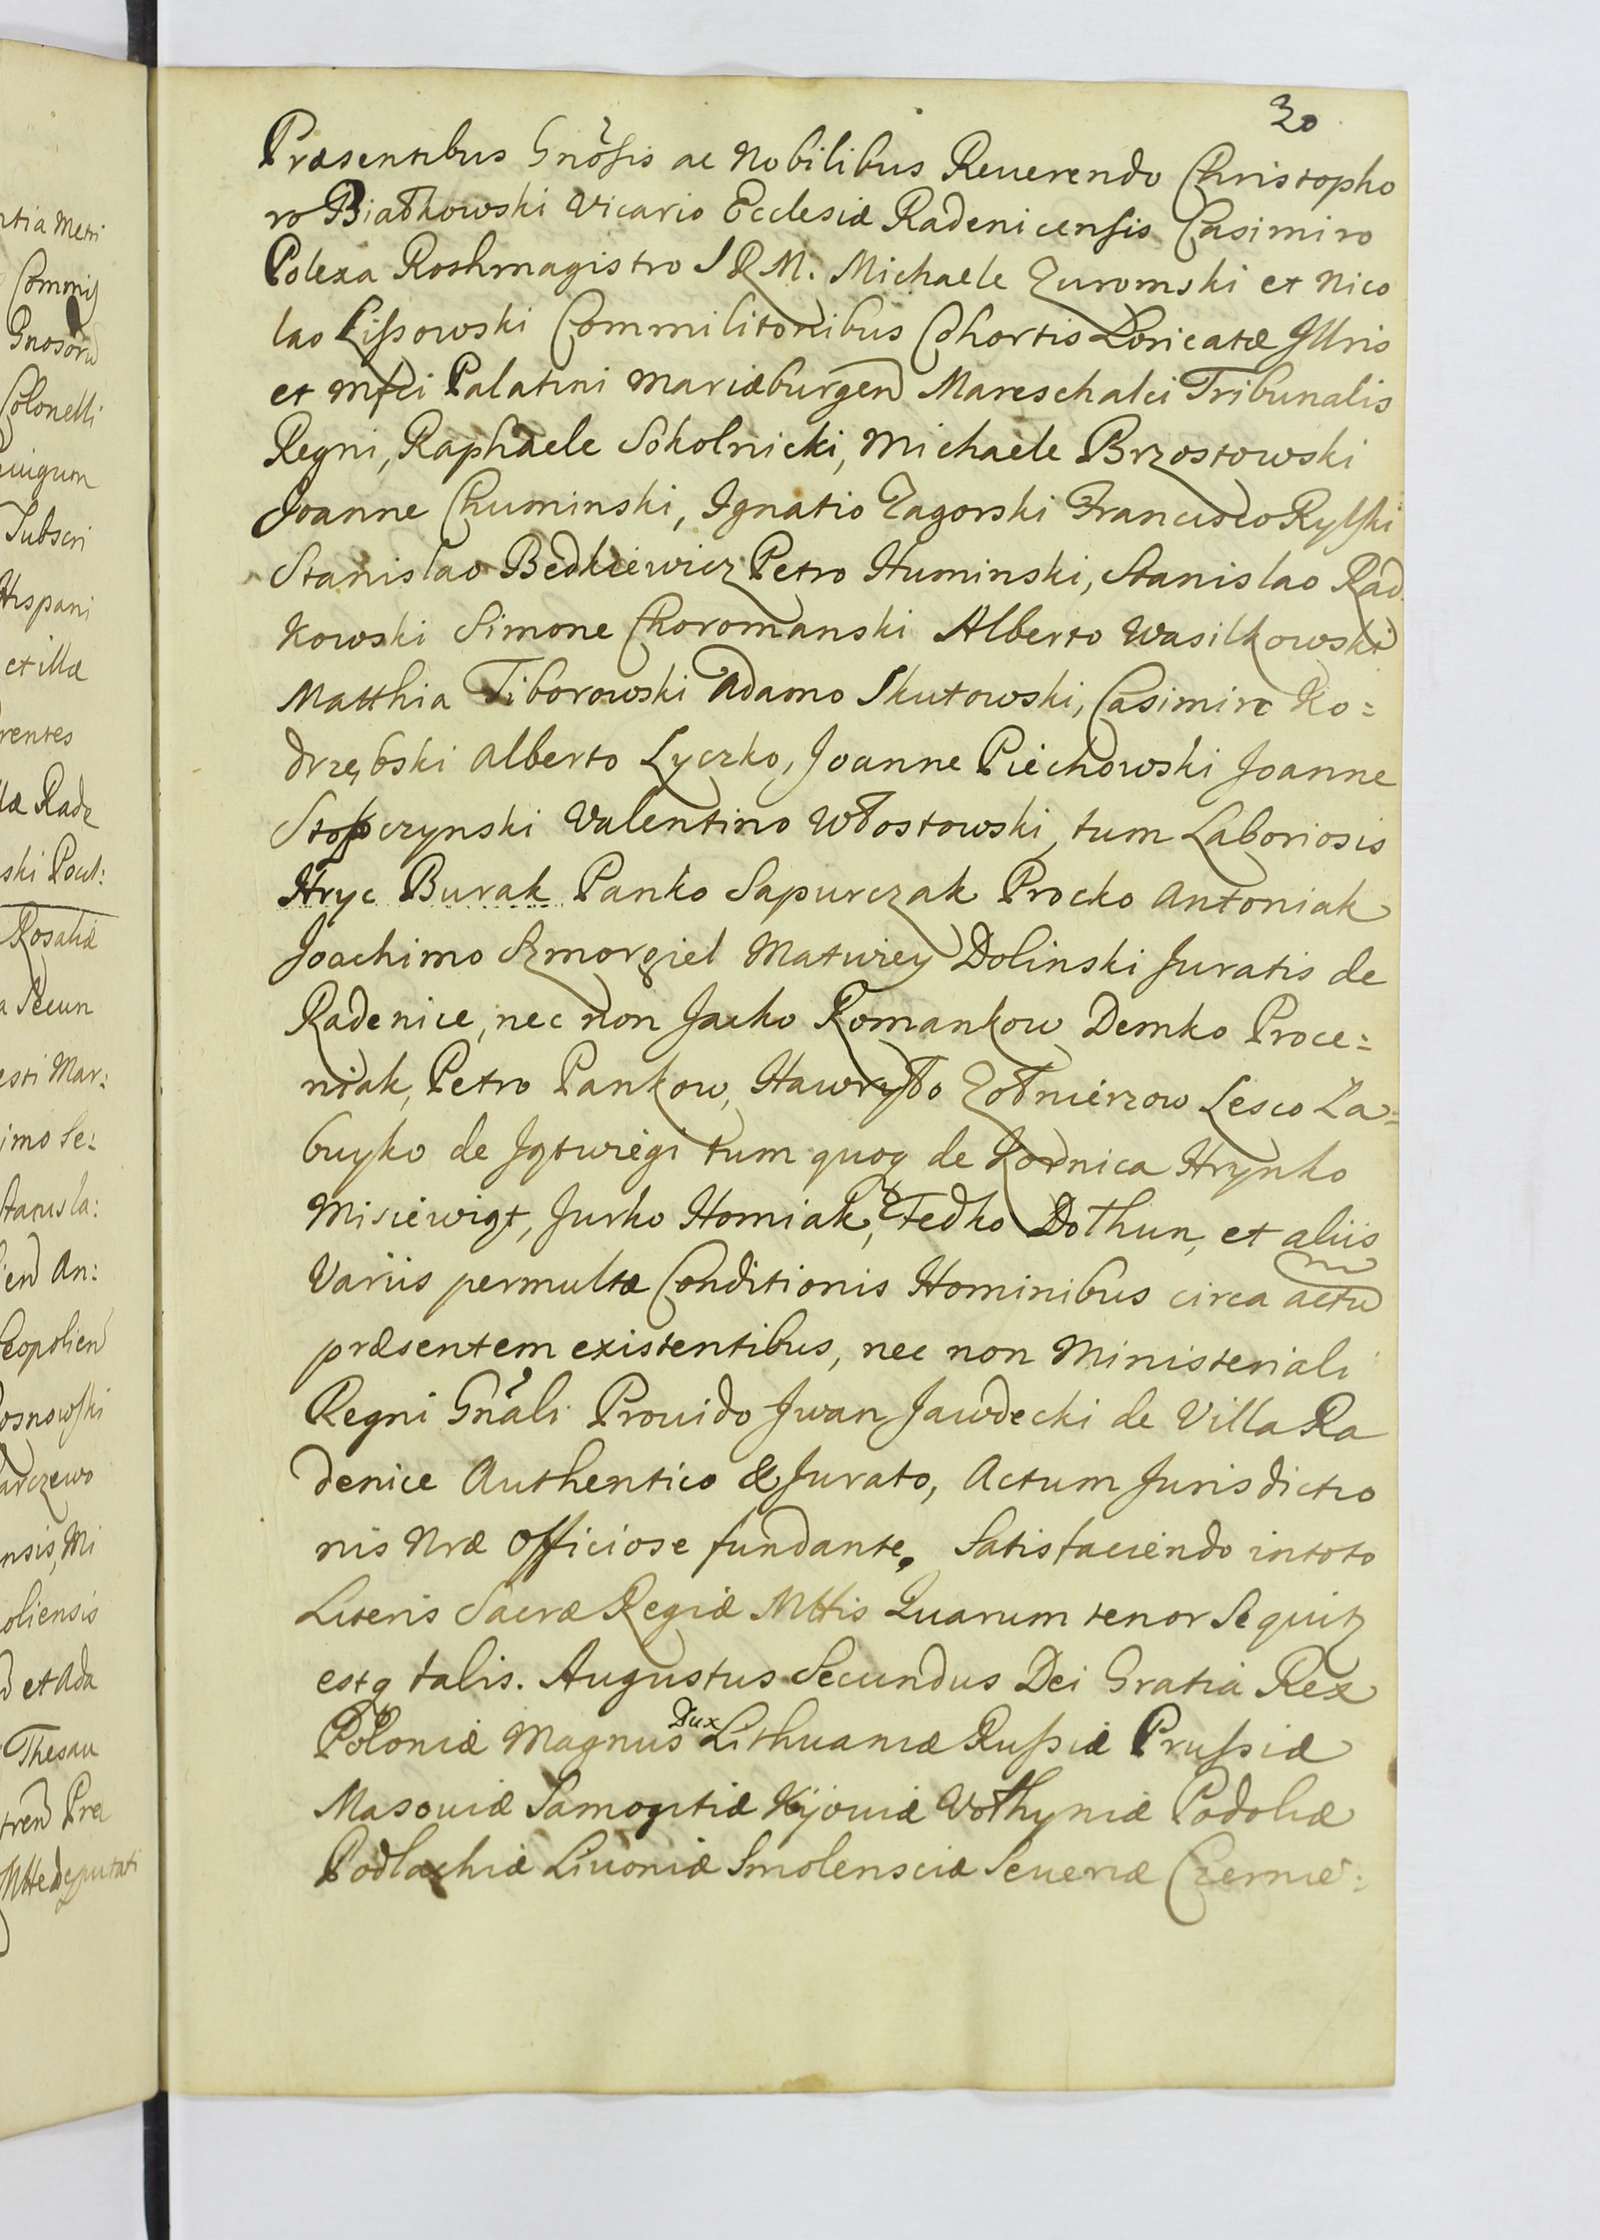 ntia Metri
Commis
Gnosorũ
Colonelli
Subscri
Hispani
et illæ
rentes
ski Pocil:
Rosaliæ
a Secun
esti Mar:
imo Se:
Stanisla:
An:
Leopolien
nsis, Mi
oliensis
et Ada
Thesau
Mtte deputati
30
Præsentibus Gnõsis ac Nobilibus Reuerendo Christopho
ro Białkowski Vicario Ecclesiæ Radenicensis Casimiro
Polexa Rothmagistro S R M. Michaele Zuromski et Nico
lao Lissowski Commilitonibus Cohortis Loricatæ Jllris
et Mfci Palatini Mariæburgen Mareschalci Tribunalis
Regni, Raphaele Sokolnicki, Michaele Brzostowski
Joanne Chuminski, Ignatio Zagorski Francisco Rylski
Stanislao Bedkiewicz Petro Huminski, Stanislao Rad
kowski Simone Choromanski Alberto Wasilkowski
Matthia Tiborowski Adamo Skutowski, Casimiro Ko=
drzębski Alberto Lyczko, Joanne Piechowski Joanne
Stopczynski Valentino Włostowski, tum Laboriosis
Hryc Burak Panko Sapurczak Procko Antoniak
Joachimo Szmorgiel Matwiey Dolinski Juratis de
Radenice, nec non Jacko Romankow Demko Proce=
niak, Petro Pankow, Hawryło Zołnierzow Lesco La=
buyko de Jqtwiegi tum quoq de Lodnica Hrynko
Misiewigt, Jurko Homiak, Fedko Dołhun, et aliis
Variis permultæ Conditionis Hominibus circa actũ
præsentem existentibus, nec non Ministeriali
Regni Gnãli Prouido Jwan Jawdecki de Villa Ra
denice Authentico & Jurato, Actum Jurisdictio
nis Nræ Officiose fundante, Satisfaciendo in toto
Literis Sacræ Regiæ Mttis Quarum tenor Sequitz
estq talis. Augustus Secundus Dei Gratia Rex
Poloniæ Magnus Dux Lithuaniæ Russiæ Prussiæ
Masouiæ Samogitiæ Kijouiæ Wołhyniæ Podoliæ
Podlachiæ Liuoniæ Smolensciæ Seueriæ Czernie=